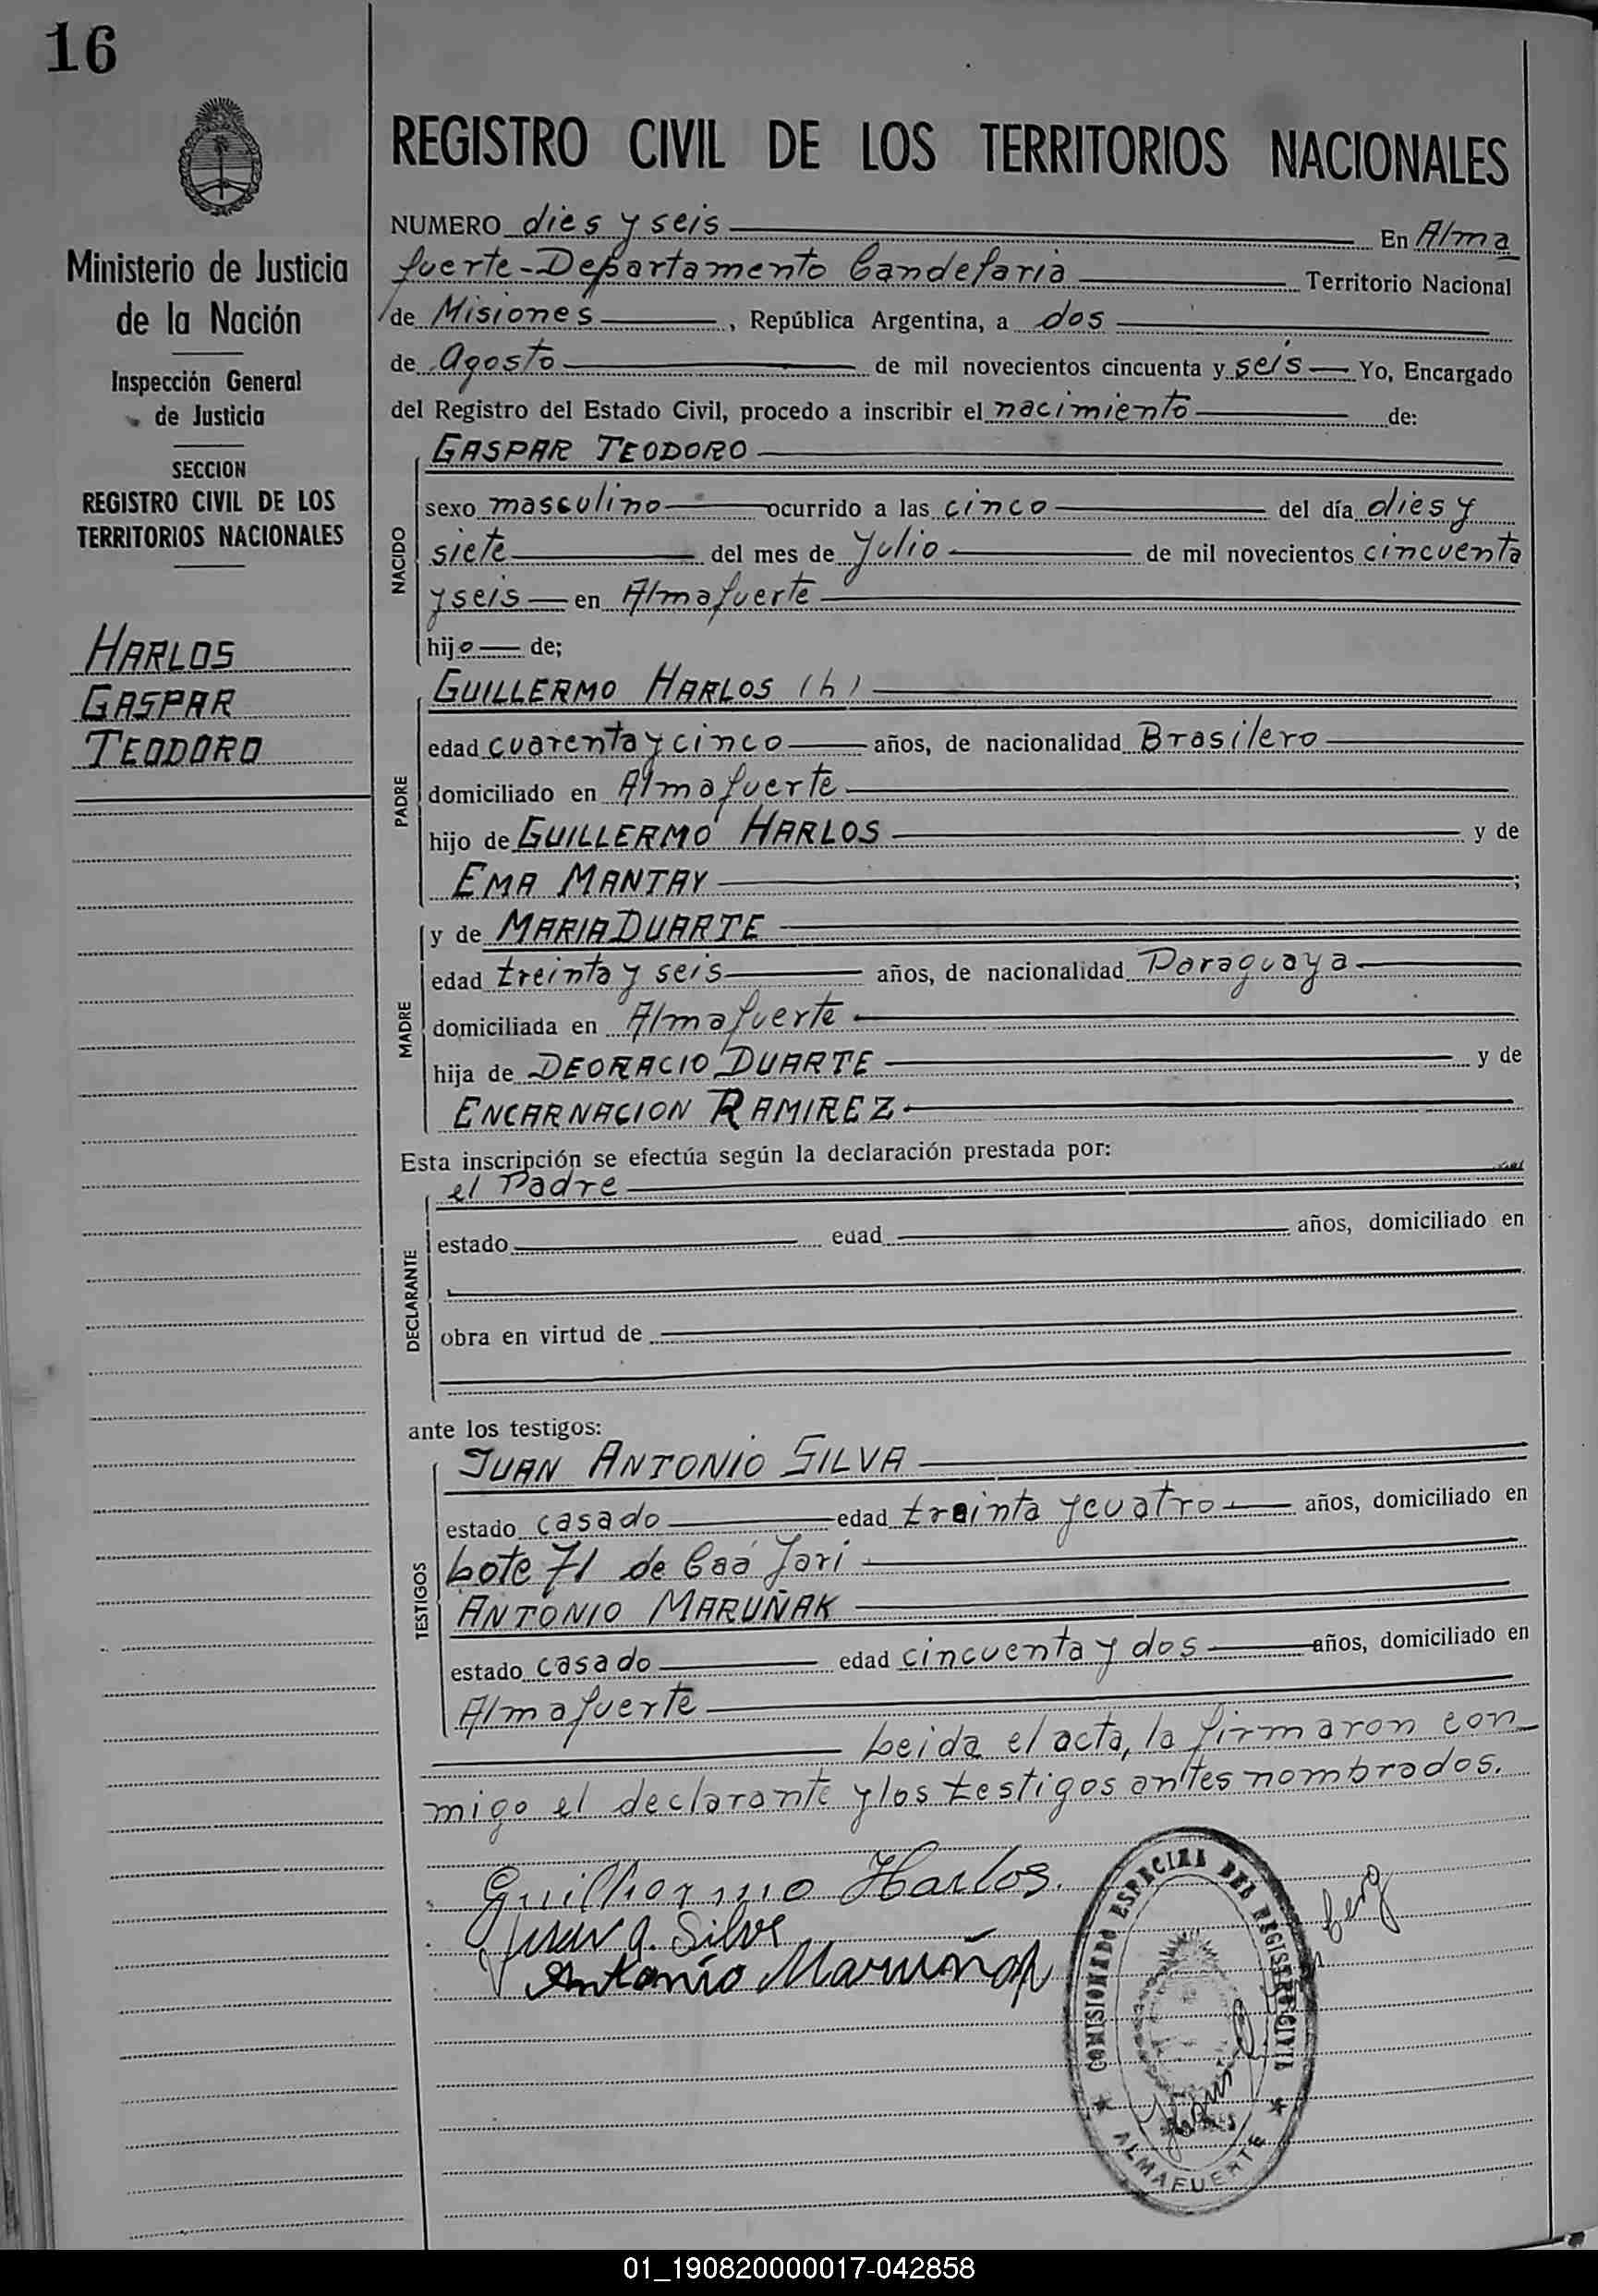 16
Ministerio de Justicia
de la Nación
Inspección General
de Justicia
SECCION
REGISTRO CIVIL DE LOS
TERRITORIOS NACIONALES
HARLOS
GASPAR
TEODORO
REGISTRO CIVIL DE LOS TERRITORIOS NACIONALES
NUMERO dies y seis En Alma
fuerte-Departamento Candelaria Territorio Nacional
de Misiones, República Argentina, a dos
de Agosto de mil novecientos cincuenta y seis Yo, Encargado
del Registro del Estado Civil, procedo a inscribir el nacimiento de:
NACIDO
GASPAR TEODORO
sexo masculino ocurrido a las cinco del día dies y
siete del mes de Julio de mil novecientos cincuenta
y seis en Almafuerte
hijo de;
PADRE
GUILLERMO HARLOS (h)
edad cuarenta y cinco años, de nacionalidad Brasilero
domiciliado en Almafuerte
hijo de GUILLERMO HARLOS y de
EMA MANTAY ;
MADRE
y de MARIA DUARTE
edad treinta y seis años, de nacionalidad Paraguaya
domiciliada en Almafuerte
hija de DEORACIO DUARTE y de
ENCARNACION RAMIREZ
Esta inscripción se efectúa según la declaración prestada por:
DECLARANTE
el Padre
estado edad años, domiciliado en
obra en virtud de
ante los testigos:
TESTIGOS
JUAN ANTONIO SILVA
estado casado edad treinta y cuatro años, domiciliado en
Lote 71 de Caá Yari
ANTONIO MARUÑAK
estado casado edad cincuenta y dos años, domiciliado en
Almafuerte
Leida el acta, la firmaron con
migo el declarante y los testigos antes nombrados.
Guilhermo Harlos.
Juan A. Silva
Antonio Maruñak
COMISIONADO ESPECIAL DEL REGISTRO CIVIL
ALMAFUERTE
01_190820000017-042858